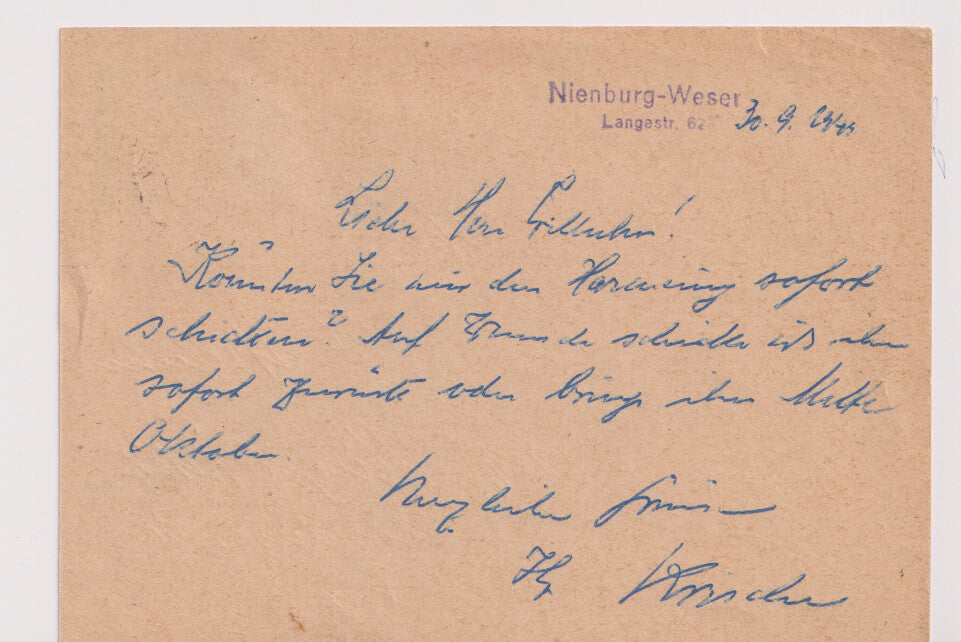 Nienburg-Weser
Langestr. 62 30. 9. 1949
Lieber Herr
Könnten Sie mir den sofort
schicken? Auf Wunsch schicke ich ihn
sofort zurück oder bringe ihn Mitte
Oktober.
Herzliche Grüsse
Ihr